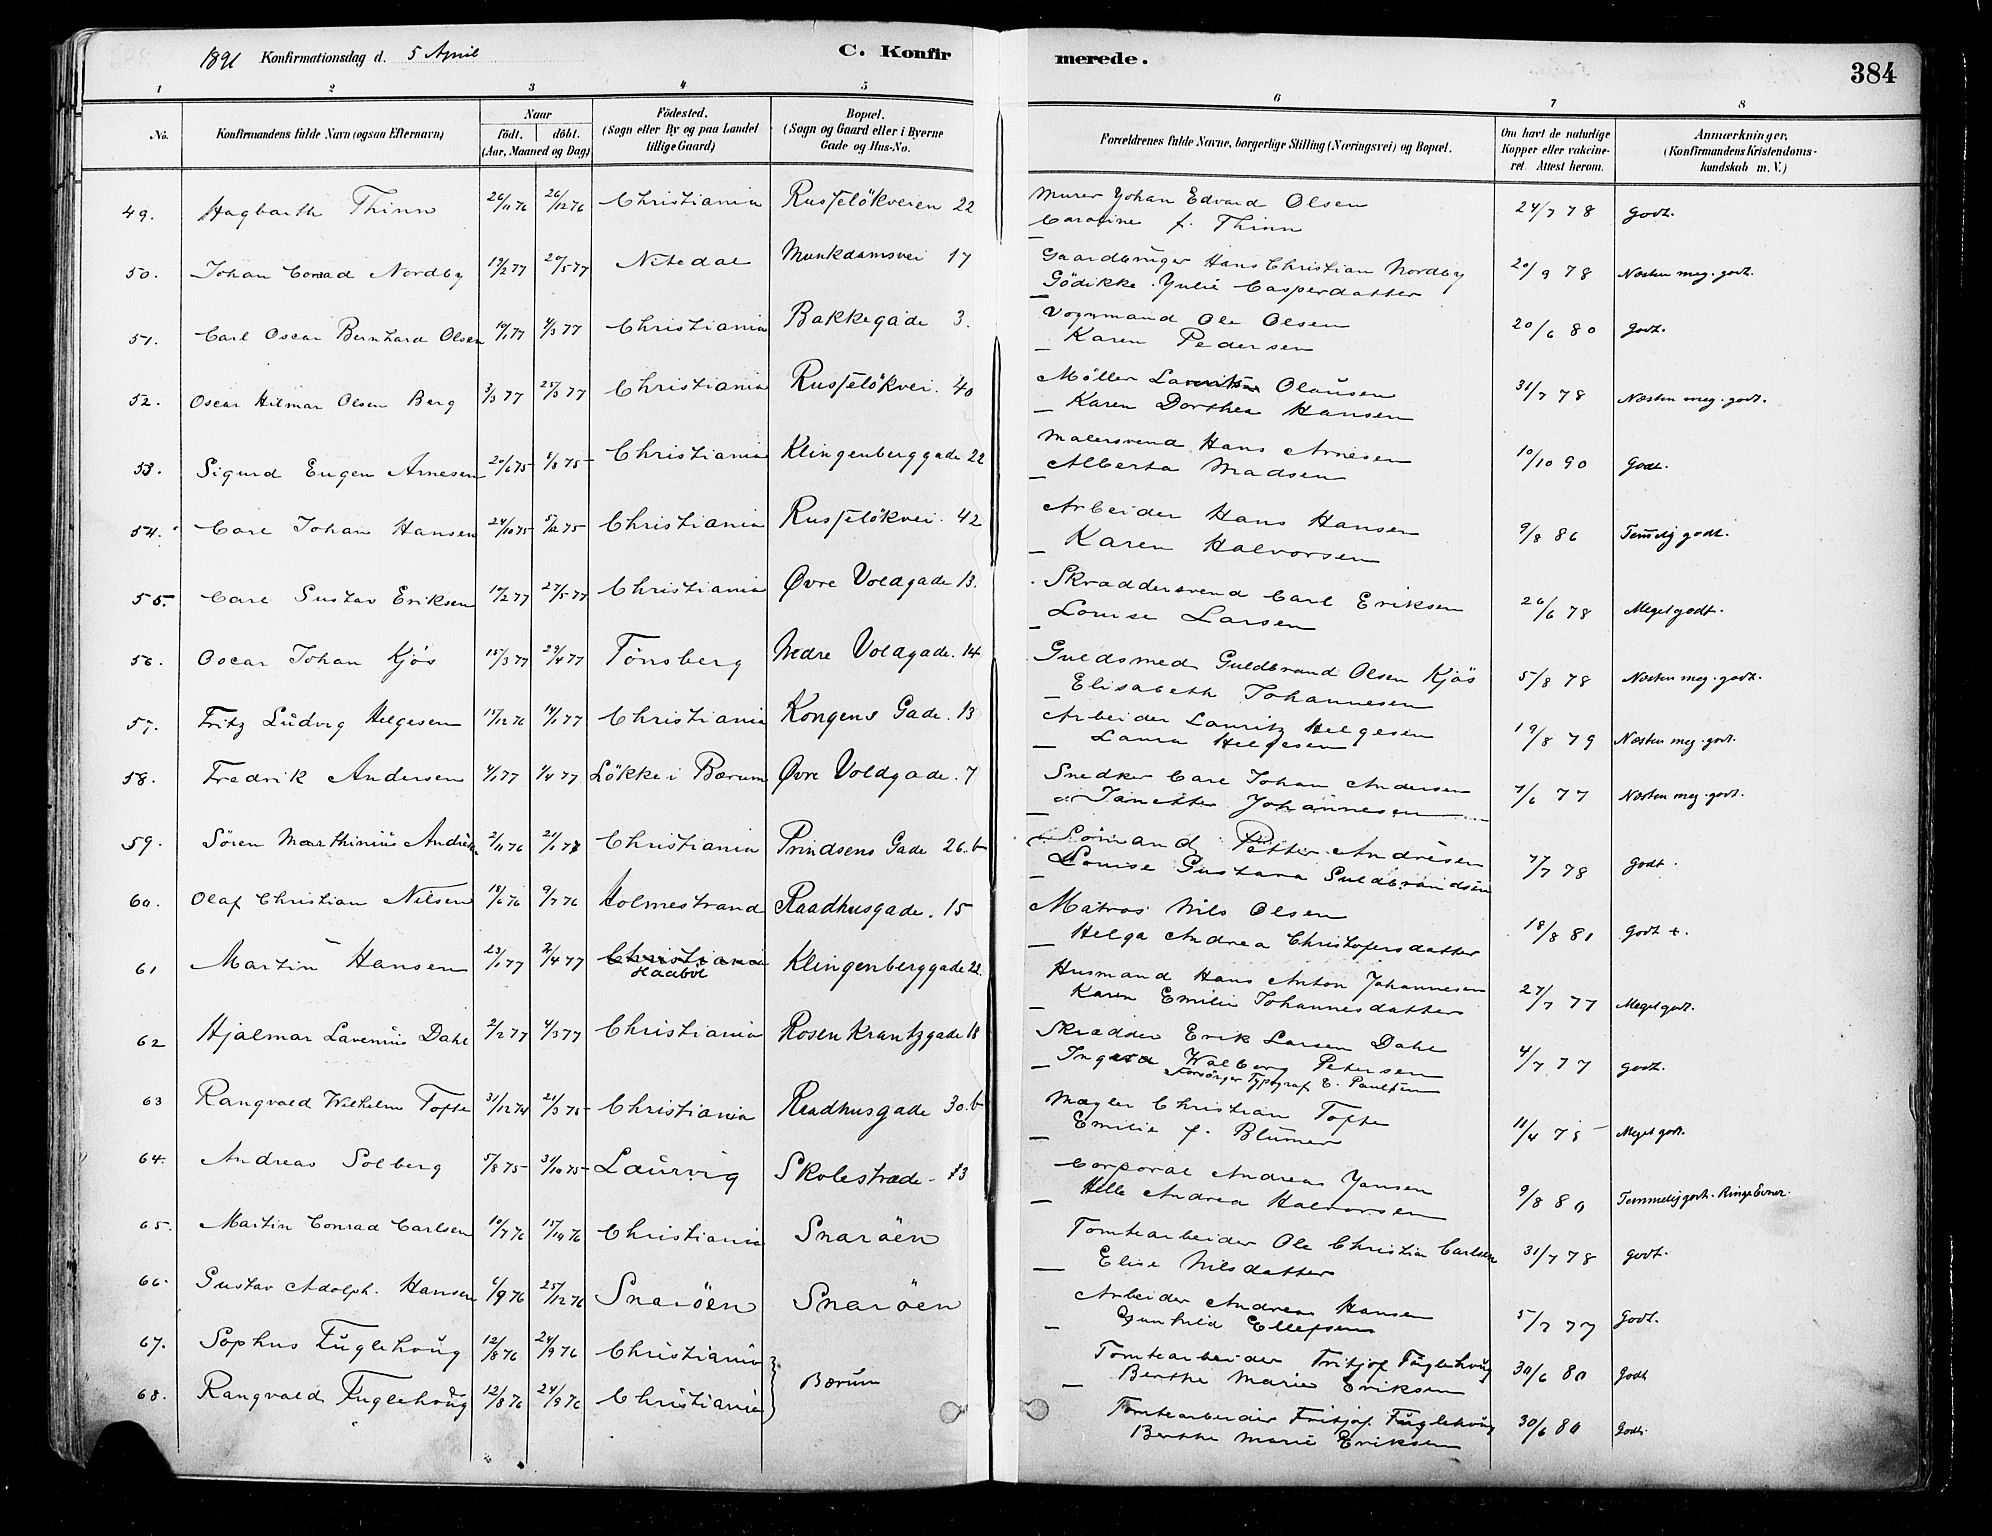 1891 Konfirmationsdag d. 5 April C. Konfirmerede. 384
1 2 3 4 5 6 7 8
No. Konfirmandens fulde Navn (ogsaa Efternavn) Naar født. døbt. (Aar, Maaned og Dag) Fødested. (Sogn eller By og paa Landet tillige Gaard) Bopæl. (Sogn og Gaard eller i Byerne Gade og Hus-No. Forældrenes fulde Navne, borgerlige Stilling (Næringsvei) og Bopæl. Om havt de naturlige Kopper eller vakcineret. Attest herom. Anmærkninger, (Konfirmandens Kristendomskundskab m. V.)
49. Hagbarth Thinn 26/11 76 26/12 76 Christiania Russeløkveien 22 Murer Johan Edvard Olsen 24/7 78 Godt.
Caroline f. Thinn
50. Johan Conrad Nordby 19/2 77 20/5 77 Nitedal Munkdamsvei 17 Gaardbruger Hans Christian Nordby 20/9 78 Næsten meg. godt.
Gödikke Julie Casperdatter
51. Carl Oscar Bernhard Olsen 10/1 77 4/3 77 Christiania Bakkegade 3. Vognmand Ole Olsen 20/6 80 Godt.
Karen Pedersen
52. Oscar Hilmar Olsen Berg 3/3 77 25/3 77 Christiania Russeløkvei. 40 Møller Olausen 31/7 78 Næsten meg. godt.
Karen Dorthea Hansen
53. Sigurd Eugen Arnesen 20/6 75 8/8 75 Christiania Klingenberggade 22 Malersvend Hans Arnesen 10/10 90 Godt.
Alberta Madsen
54. Carl Johan Hansen 24/10 75 5/12 75 Christiania Russeløkvei. 42 Arbeider Hans Hansen 9/8 86 Temelig godt.
Karen Halvorsen
55. Carl Gustav Eriksen 10/2 77 27/5 77 Christiania Øvre Voldgade 13. Skræddersvend Carl Eriksen 26/6 78 Meget godt.
Louise Larsen
56. Oscar Johan Kjös 15/3 77 29/4 77 Tönsberg Nedre Voldgade. 14 Guldsmed Guldbrand Olsen Kjös 5/8 78 Næsten meg. godt.
Elisabeth Johannesen
57. Fritz Ludvig Helgesen 15/12 76 14/1 77 Christiania Kongens Gade. 13 Arbeider Lauritz Helgesen 19/8 79 Næsten meg. godt.
Laura Helgesen
58. Fredrik Andersen 4/1 77 1/4 77 Lökke i Bærum Øvre Voldgade. 7 Snedker Carl Johan Andersen 7/6 77 Næsten meg. godt.
Janette Johannesen
59. Sören Marthinius Andresen 2/11 76 21/1 77 Christiania Prindsens Gade 26. b Sömand Petter Andresen 7/7 78 Godt.
Louise Gustava Guldbrandsen
60. Olaf Christian Nilsen 18/6 76 9/7 76 Holmestrand Raadhusgade. 15 Matros Nils Olsen 18/8 81 Godt +.
Helga Andrea Christofersdatter
61 Martin Hansen 23/1 77 2/4 77 Christiania Klingenberggade 22. Husmand Hans Anton Johannesen 27/7 77 Meget godt.
Haaböl Karen Emilie Johannesdatter
62 Hjalmar Lavenius Dahl 2/2 77 4/3 77 Christiania Rosenkrantzgade 18 Skrædder Erik Larsen Dahl 4/7 77 godt.
Walborg Petersen
Forsörger Typograf E. Paulsen
63 Rangvald Wilhelm Tofte 31/12 74 21/3 75 Christiania Raadhusgade 30. b Mægler Christian Tofte 11/4 75 Meget godt.
Emilie f. Blümer
64. Andreas Solberg 5/8 75 31/10 75 Laurvig Skolestræde - 13 Corporal Andreas Jansen 9/8 80 Temmelig godt. Ringe Evner.
Helle Andrea Halvorsen
65. Martin Conrad Carlsen 10/7 76 15/10 76 Christiania Snaröen Tomtearbeider Ole Christian Carlsen 31/7 78 godt.
Elise Nilsdatter
66. Gustav Adolph. Hansen 6/9 76 25/12 76 Snaröen Snaröen Arbeider Andreas Hansen 5/7 77 Godt.
Gunhild Ellefsen
67. Sophus Fuglehoug 12/8 76 24/9 76 Christiania Bærum Tomtearbeider Fritjof Fuglehoug 30/6 80 Godt
Berthe Marie Eriksen
68. Rangvald Fuglehoug 12/8 76 24/9 76 Christiania Tomtearbeider Fritjof Fuglehoug 30/6 80 Godt.
Berthe Marie Eriksen